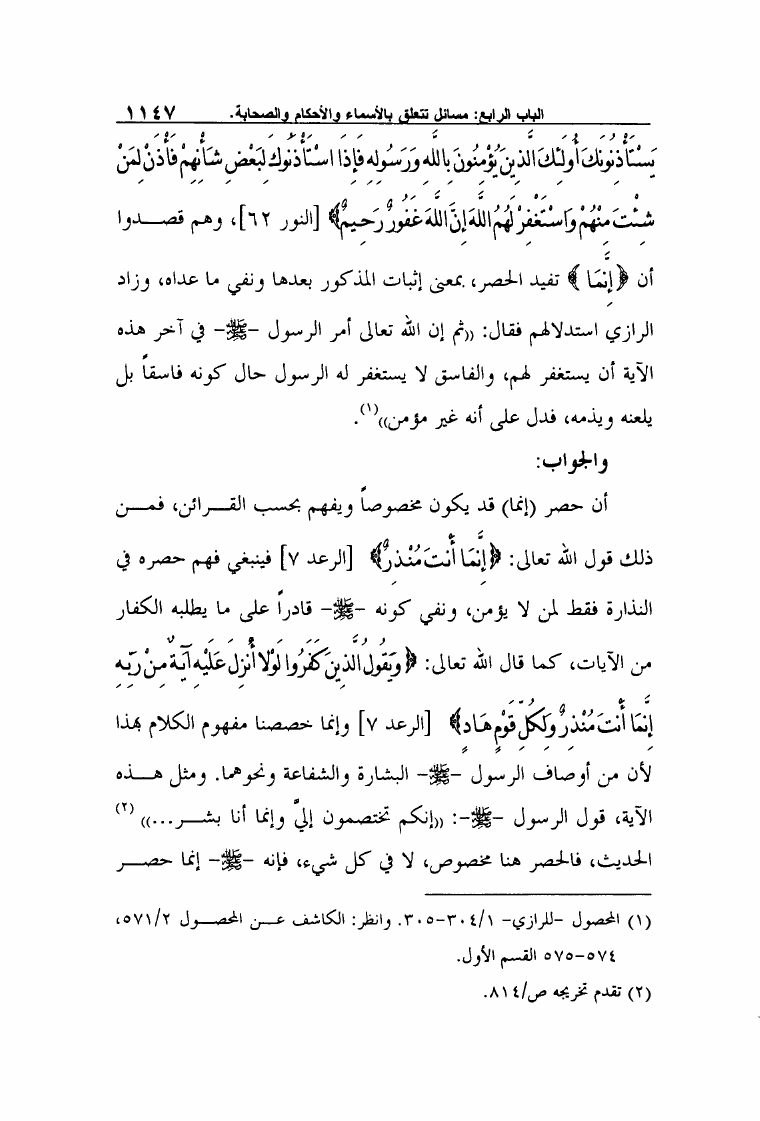 الباب الرابع: مسائل تتعلق بالأسماء والأحكام والصحابة. ١١٤٧
يَسْتَأْذِنُونَكَ أُولَئِكَ الَّذِينَ يُؤْمِنُونَ بِاللَّهِ وَرَسُولِهِ فَإِذَا اسْتَأْذَنُوكَ لِبَعْضِ شَأْنِهِمْ فَأْذَنْ لِمَنْ
شِئْتَ مِنْهُمْ وَاسْتَغْفِرْ لَهُمُ اللَّهَ إِنَّ اللَّهَ غَفُورٌ رَحِيمٌ﴾ [النور ٦٢]، وهم قصــدوا
أن ﴿إِنَّمَا﴾ تفيد الحصر، بمعنى إثبات المذكور بعدها ونفي ما عداه، وزاد
الرازي استدلالهم فقال: ((ثم إن الله تعالى أمر الرسول -ﷺ- في آخر هذه
الآية أن يستغفر لهم، والفاسق لا يستغفر له الرسول حال كونه فاسقاً بل
يلعنه ويذمه، فدل على أنه غير مؤمن))(١).
والجواب:
أن حصر (إنما) قد يكون مخصوصاً ويفهم بحسب القـــرائن، فمـــن
ذلك قول الله تعالى: ﴿إِنَّمَا أَنْتَ مُنْذِرٌ﴾ [الرعد ٧] فينبغي فهم حصره في
النذارة فقط لمن لا يؤمن، ونفي كونه -ﷺ- قادراً على ما يطلبه الكفار
من الآيات، كما قال الله تعالى: ﴿وَيَقُولُ الَّذِينَ كَفَرُوا لَوْلَا أُنْزِلَ عَلَيْهِ آيَةٌ مِنْ رَبِّهِ
إِنَّمَا أَنْتَ مُنْذِرٌ وَلِكُلِّ قَوْمٍ هَادٍ﴾ [الرعد ٧] وإنما خصصنا مفهوم الكلام بهذا
لأن من أوصاف الرسول -ﷺ- البشارة والشفاعة ونحوهما. ومثل هـــذه
الآية، قول الرسول -ﷺ-: ((إنكم تختصمون إليَّ وإنما أنا بشـــر...))(٢)
الحديث، فالحصر هنا مخصوص، لا في كل شيء، فإنه -ﷺ- إنما حصـــر
(١) المحصول -للرازي- ٣٠٤/١-٣٠٥. وانظر: الكاشف عـــن المحصـــول ٥٧١/٢،
٥٧٤-٥٧٥ القسم الأول.
(٢) تقدم تخريجه ص/٨١٤.